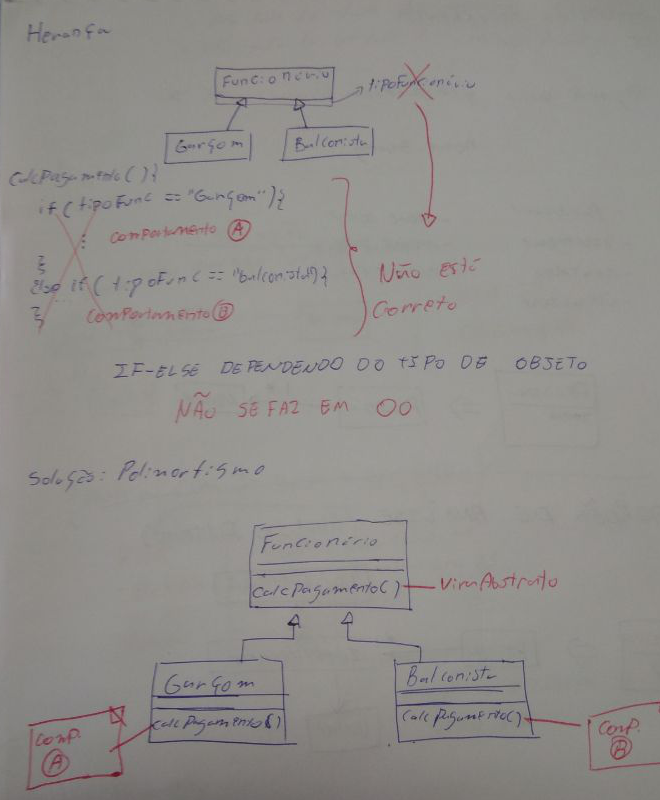 Herança
Funcionário
tipoFuncionário
Garçom
Balconista
CalcPagamento(){
if( tipoFunc == "Garçom"){
:
comportamento A
}
Else if( tipoFunc == "balconista"){
comportamento B
}
Não está
Correto
IF-ELSE DEPENDENDO DO TIPO DE OBJETO
NÃO SE FAZ EM OO
Solução: Polimorfismo
Funcionário
CalcPagamento()
Vira Abstrato
Garçom
Balconista
CalcPagamento()
CalcPagamento()
Comp.
A
Comp.
B